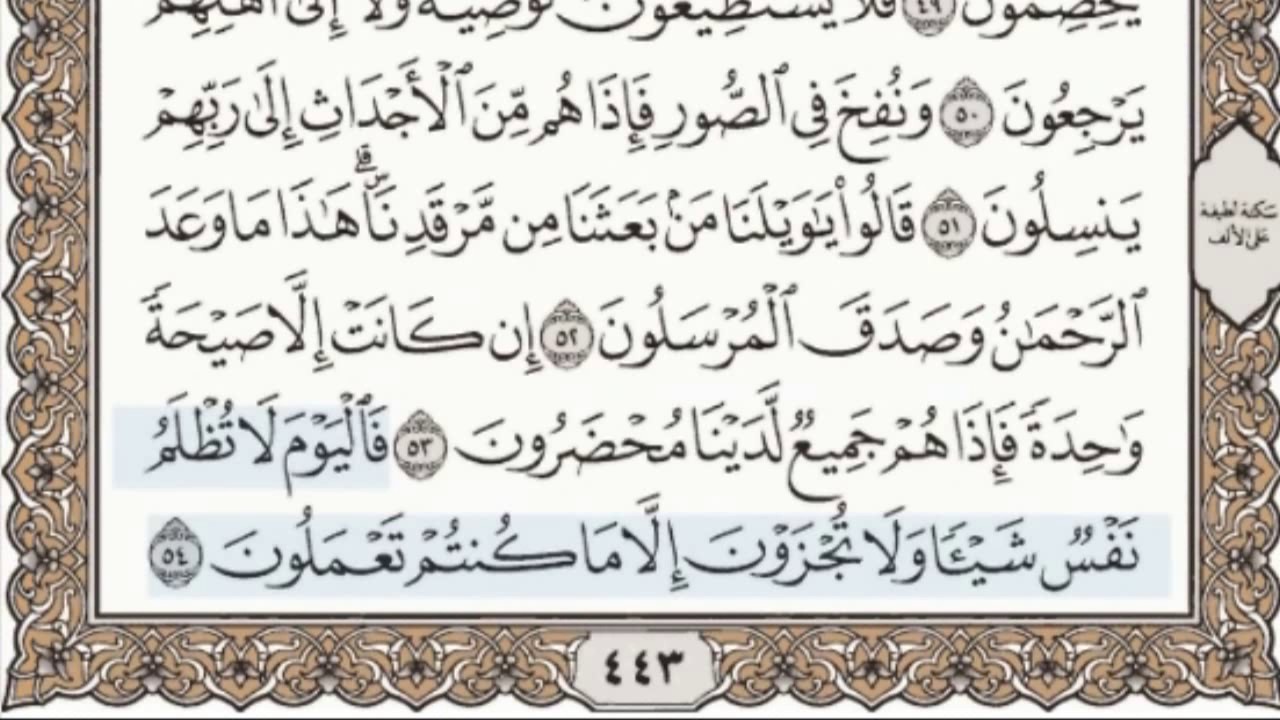 يَخِصِّمُونَ ٤٩ فَلَا يَسْتَطِيعُونَ تَوْصِيَةً وَلَآ إِلَىٰٓ أَهْلِهِمْ
يَرْجِعُونَ ٥٠ وَنُفِخَ فِى ٱلصُّورِ فَإِذَا هُم مِّنَ ٱلْأَجْدَاثِ إِلَىٰ رَبِّهِمْ
يَنسِلُونَ ٥١ قَالُوا۟ يَٰوَيْلَنَا مَنۢ بَعَثَنَا مِن مَّرْقَدِنَاۜ ۗ هَٰذَا مَا وَعَدَ
ٱلرَّحْمَٰنُ وَصَدَقَ ٱلْمُرْسَلُونَ ٥٢ إِن كَانَتْ إِلَّا صَيْحَةً
وَٰحِدَةً فَإِذَا هُمْ جَمِيعٌ لَّدَيْنَا مُحْضَرُونَ ٥٣ فَٱلْيَوْمَ لَا تُظْلَمُ
نَفْسٌ شَيْـًٔا وَلَا تُجْزَوْنَ إِلَّا مَا كُنتُمْ تَعْمَلُونَ ٥٤
سكتة لطيفة
على الألف
٤٤٣